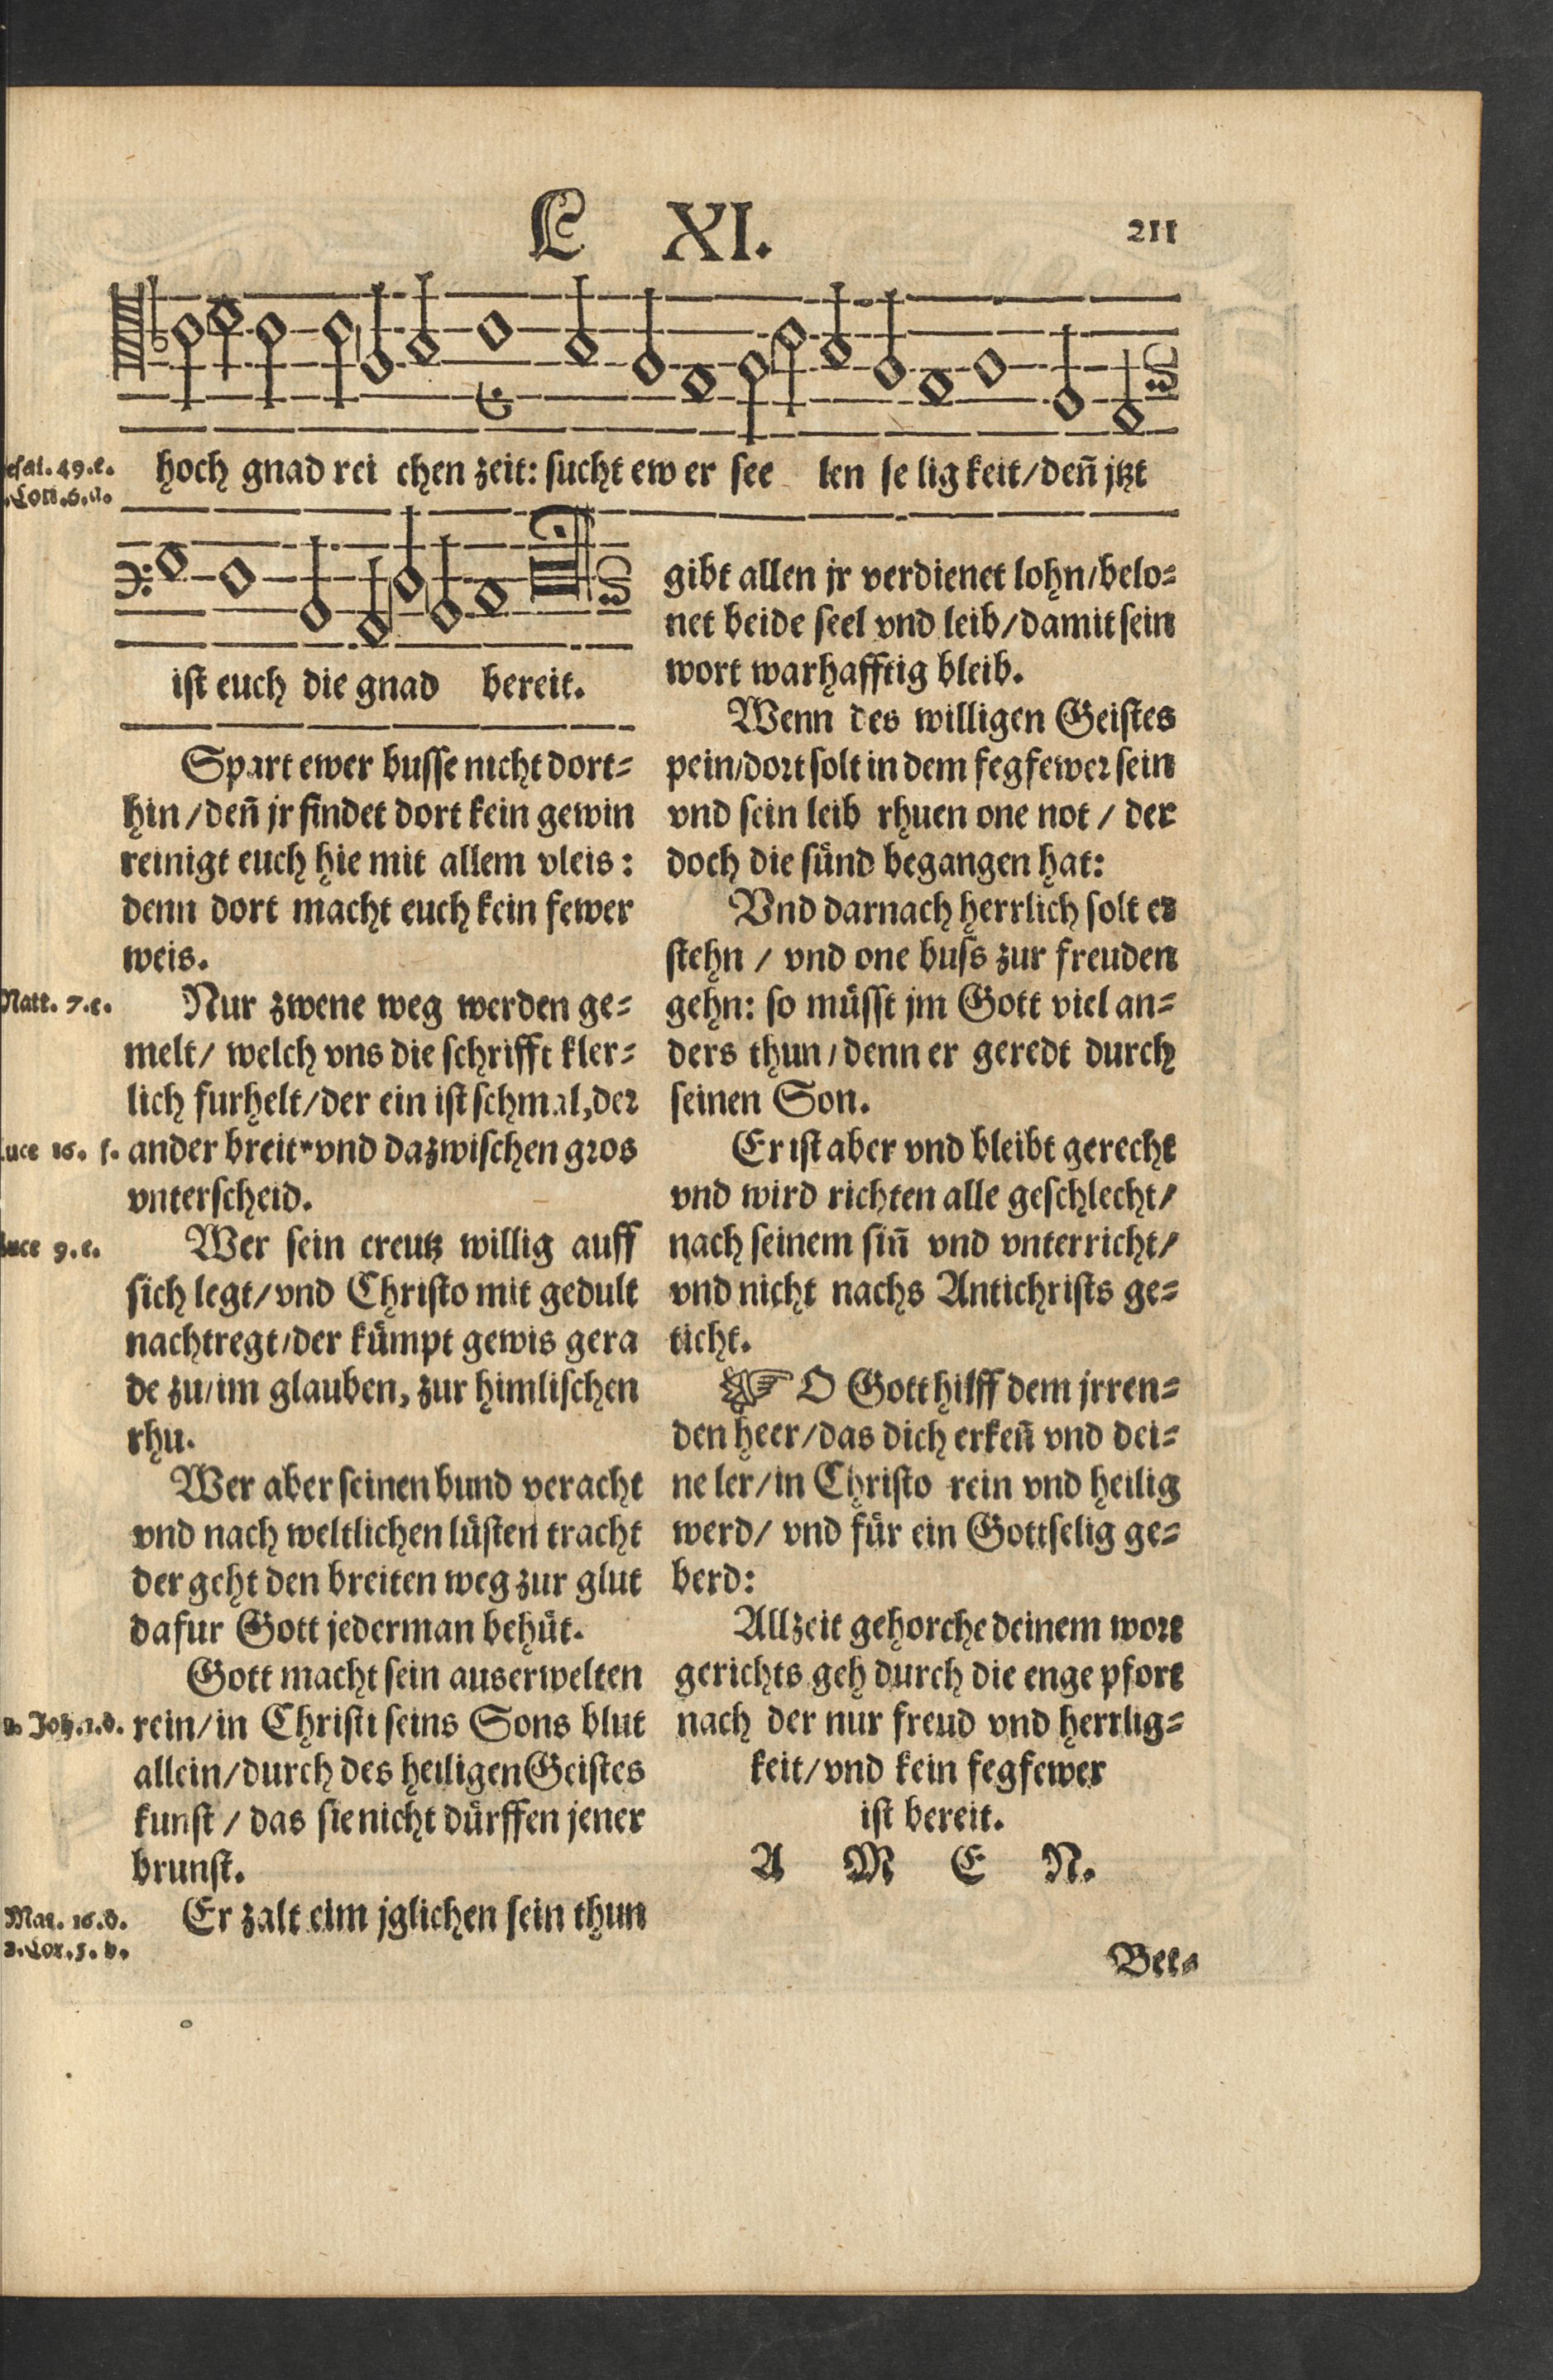 E XI. 211
esai. 49. e.
Cori. 6. a.
hoch gnad rei chen zeit: sucht ew er see len se lig keit/ deñ jtzt
ist euch die gnad bereit.
Spart ewer busse nicht dort=
hin / deñ jr findet dort kein gewin
reinigt euch hie mit allem vleis:
denn dort macht euch kein fewer
weis.
Matt. 7. e.
Nur zwene weg werden ge=
melt/ welch vns die schrifft kler=
lich furhelt/ der ein ist schmal, der
Luce 16. f.
ander breit vnd dazwischen gros
vnterscheid.
Luce 9. e.
Wer sein creutz willig auff
sich legt/ vnd Christo mit gedult
nachtregt/ der kümpt gewis gera
de zu/ im glauben, zur himlischen
rhu.
Wer aber seinen bund veracht
vnd nach weltlichen lüsten tracht
der geht den breiten weg zur glut
dafur Gott jederman behüt.
Gott macht sein auserwelten
Joh. 1. d.
rein/ in Christi seins Sons blut
allein/ durch des heiligen Geistes
kunst / das sie nicht dürffen jener
brunst.
Mat. 16. d.
2. Cor. 5. b.
Er zalt eim jglichen sein thun
gibt allen jr verdienet lohn/ belo=
net beide seel vnd leib/ damit sein
wort warhafftig bleib.
Wenn des willigen Geistes
pein/ dort solt in dem fegfewer sein
vnd sein leib rhuen one not / der
doch die sünd begangen hat:
Vnd darnach herrlich solt er
stehn / vnd one buss zur freuden
gehn: so müsst jm Gott viel an=
ders thun/ denn er geredt durch
seinen Son.
Er ist aber vnd bleibt gerecht
vnd wird richten alle geschlecht/
nach seinem siñ vnd vnterricht/
vnd nicht nachs Antichrists ge=
ticht.
☞ O Gott hilff dem jrren=
den heer/ das dich erkeñ vnd dei=
ne ler/ in Christo rein vnd heilig
werd/ vnd für ein Gottselig ge=
berd:
Allzeit gehorche deinem wort
gerichts geh durch die enge pfort
nach der nur freud vnd herrlig=
keit/ vnd kein fegfewer
ist bereit.
A M E N.
Bet=